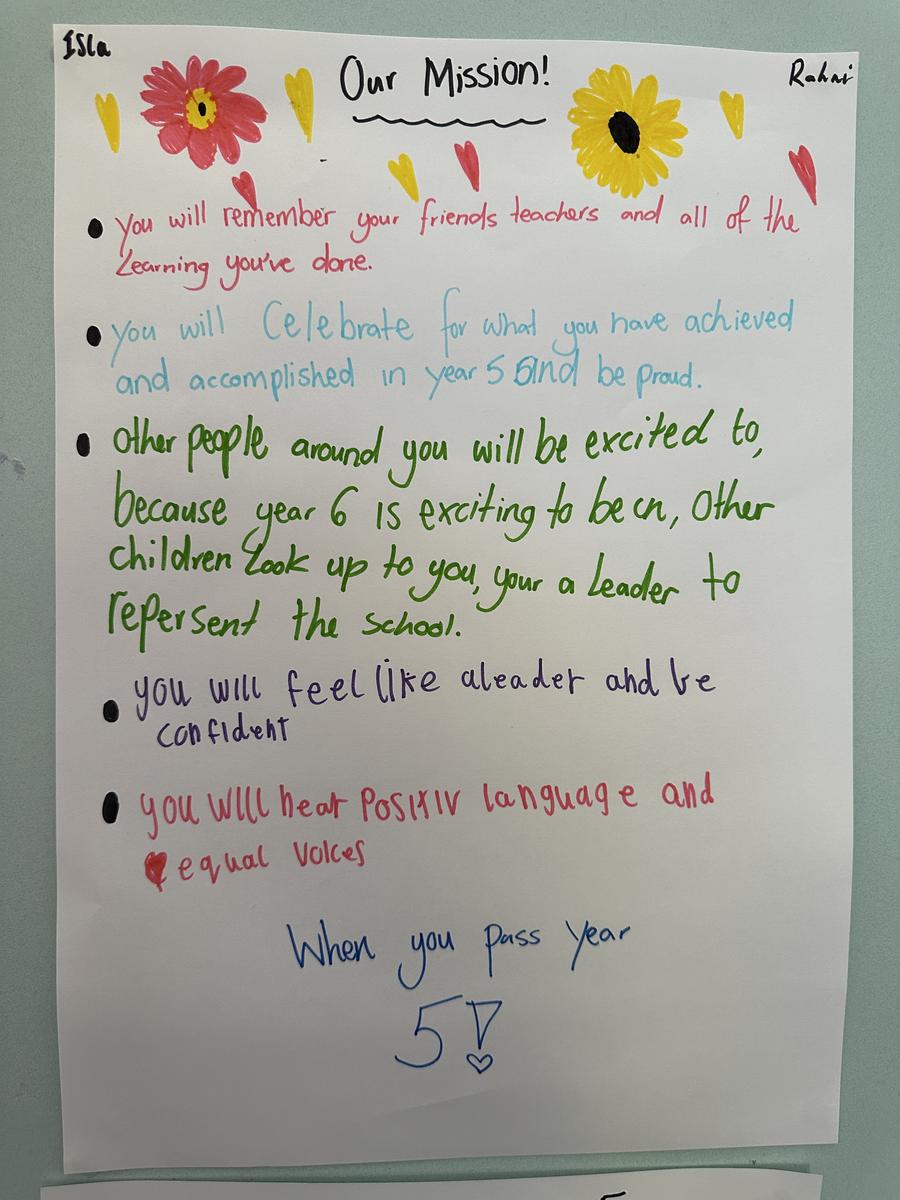 Isla
Our Mission!
Rahni
You will remember your friends teachers and all of the
Learning you've done.
You will Celebrate for what you have achieved
and accomplished in year 5 and be proud.
Other people around you will be excited to,
because year 6 is exciting to be in, Other
children look up to you, your a Leader to
repersent the school.
you will feel like aleader and be
confident
you will hear Positiv language and
equal voices
When you pass Year
5!